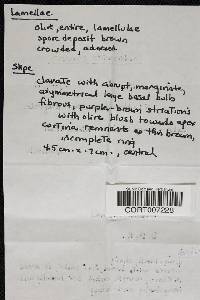 Lamellae
olive, entire, lamellulae
spore deposit brown
crowded, adnexed
Stipe
clavate with abrupt, marginate,
asymmetrical large basal bulb
fibrous, purple-brown striations
with olive blush towards apex
cortina remnants as thin brown,
incomplete ring
45cm x .7cm, central
CORT007228